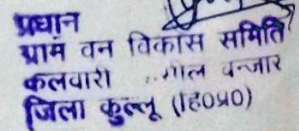 प्रधान
ग्राम वन विकास समिति
कलवारी ..मील बन्जार
जिला कुल्लू (हि0प्र0)